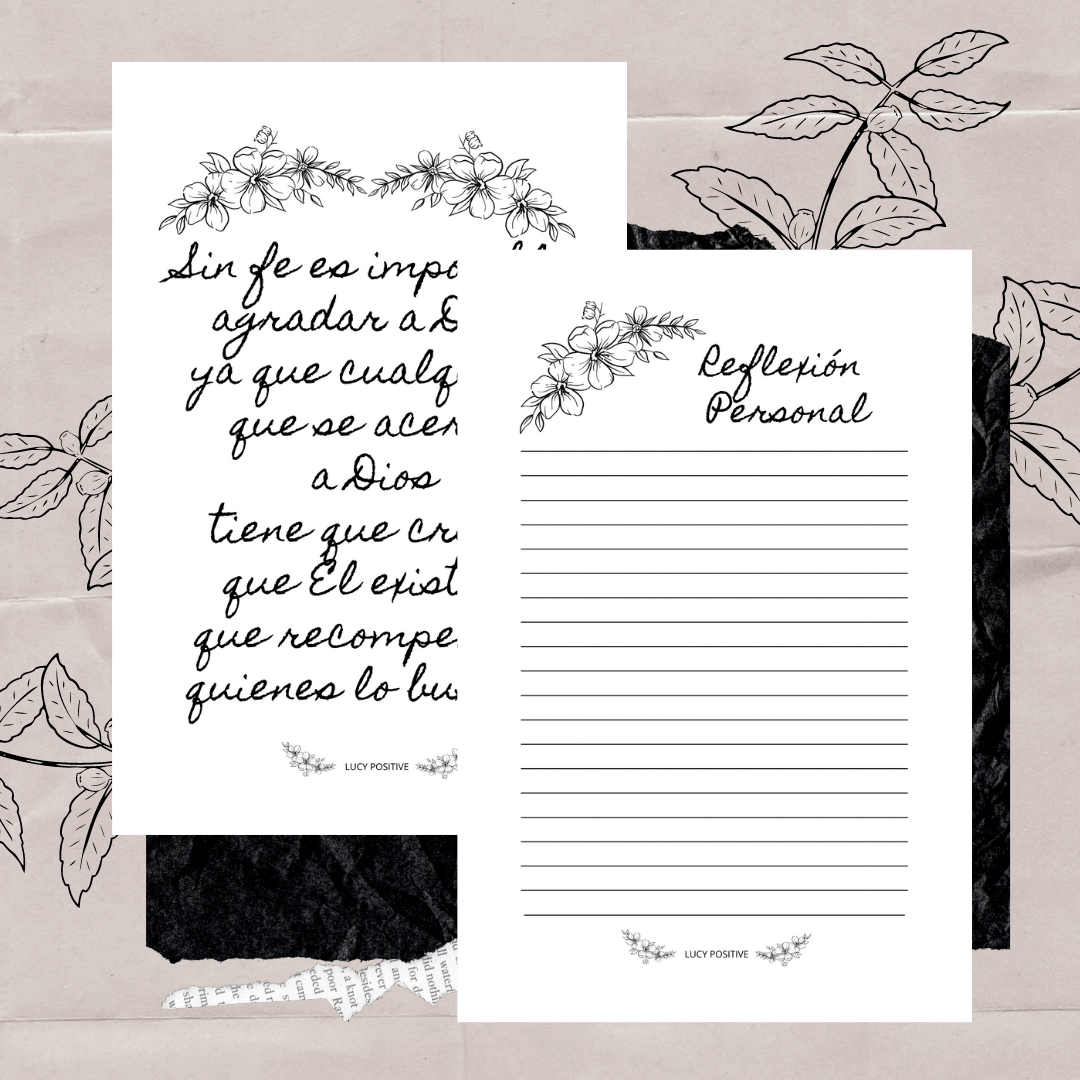 Sin fe es impo
agradar a D
ya que cualq
que se acer
a Dios
tiene que cr
que Él exist
que recompe
quienes lo bu
LUCY POSITIVE
Reflexión
Personal
LUCY POSITIVE